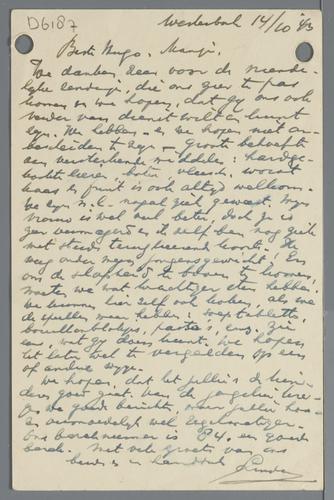 D6187
Westerbork 14/10 '43
Beste Hugo. Mansje.
We danken zeer voor de vriende-
lijke zendinge, die ons zeer te pas
komen en we hopen, dat gij ons ook
verder van dienst wilt en kunt
zijn. We hebben - en we hopen niet on-
bescheiden te zijn - groote behoefte
aan versterkende middelen: hardge-
kookte eieren, boter, vleesch, worst
kaas en fruit is ook altijd welkom.
We zijn n.l. nogal ziek geweest. Mijn
vrouw is wel veel beter, doch ze is
zeer vermagerd en ik zelf ben nog ziek
met steeds terugkeerende koorts. Ik
weeg onder mijn jongensgewicht. En
om de slapheid te boven te komen,
moeten we wat krachtiger eten hebben.
We kunnen hier zelf ook koken, als we
de spullen maar hebben: soeptabletten,
bouillonblokjes, pasta's, enz. Zie
eens, wat gij doen kunt. We hopen
het later wel te vergelden op een
of andere wijze.
We hopen, dat het jullie en de kin-
deren goed gaat. Van de jongelui krij-
gen we goede berichten, maar jullie hoo-
ren vermoedelijk wel regelmatiger.
Ons baraknummer is 84, een goede
barak. Met vele groeten van ons
beiden en handdruk